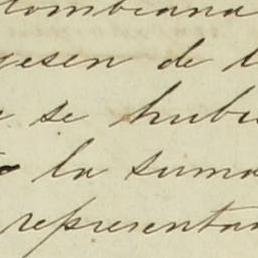 lombiana
gesen de l
se hubi
la suma
representa